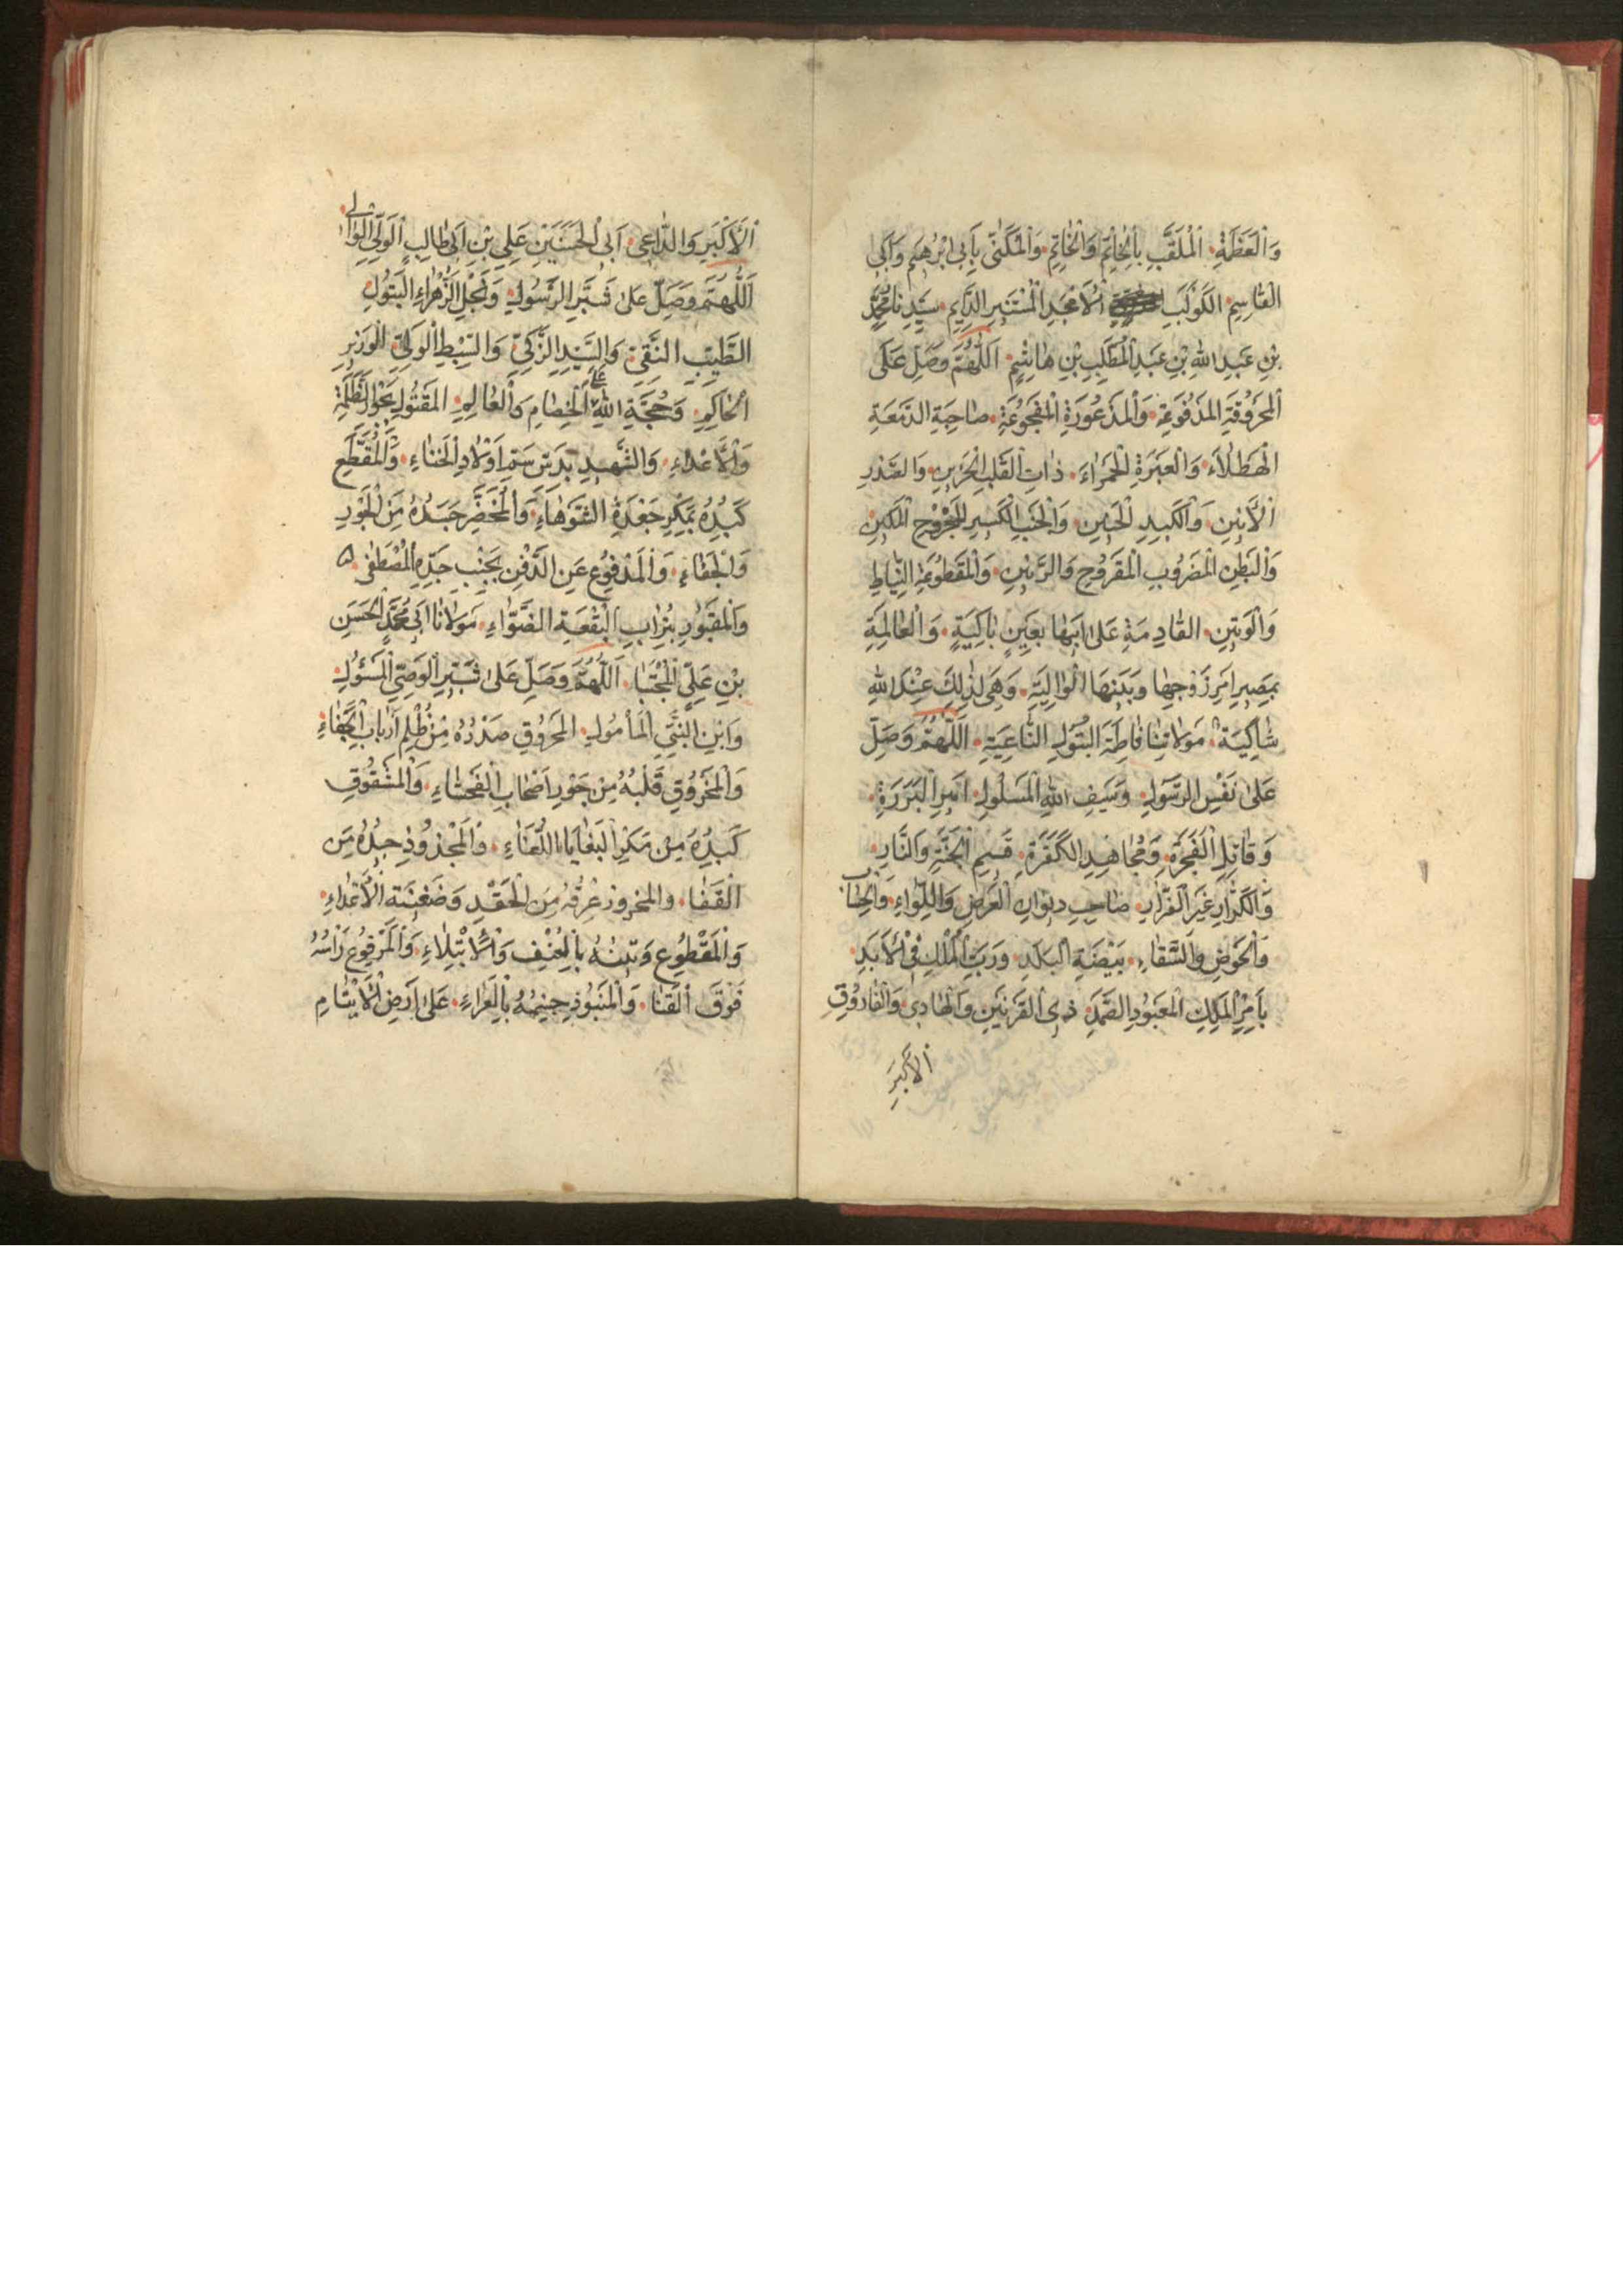 وَالْعَظَمَةِ. الْمُلَقَّبِ بِالْخَاتِمِ وَالْخَاتَمِ. وَالْمُكَنّٰى بِاَبِى ابْرٰهِيمَ وَاَبِى
الْقَاسِمِ. الكَوْكَبِ الْاَمْجَدِ الْمُسْتَنِيرِ الدَّايِمِ. سَيِّدِنَا مُحَمَّدِ
بْنِ عَبْدِ اللهِ بْنِ عَبْدِ الْمُطَّلِبِ بْنِ هَاشِمٍ. اَللّٰهُمَّ وَصَلِّ عَلَى
الْمَحْرُوقَةِ الْمَدْفُوعَةِ. وَالْمَذْعُورَةِ الْمَفْجُوعَةِ. صَاحِبَةِ الدَّمْعَةِ
الْهَطْلَاءِ. وَالْعَبْرَةِ الْحَمْرَاءِ. ذَاتِ الْقَلْبِ الْحَزِينِ. وَالصَّدْرِ
الْاَنِينِ. وَالْكَبِدِ وَالْجَنْبِ الْكَسِيرِ الْمَجْرُوحِ
وَالْبَطْنِ الْمَضْرُوبِ الْمَقْرُوحِ وَالْمَقْطُوعَةِ النِّيَاطِ
وَالْوَتِينِ. القَادِمَةِ عَلٰى اَبِيهَا بِعَيْنٍ بَاكِيَةٍ. وَالْعَالِمَةِ
بِمَصِيرِ اَمْرِ زَوْجِهَا وَبَنِيهَا الْوَالِيَةِ. وَهِىَ لِذٰلِكَ عِنْدَ اللهِ
شَاكِيَةٌ. مَوْلَاتِنَا فَاطِمَةَ الْبَتُولِ النَّاعِيَةِ. اَللّٰهُمَّ وَصَلِّ
عَلٰى نَفْسِ الرَّسُولِ. وَسَيْفِ اللهِ الْمَسْلُولِ. اَمِيرِ الْبَرَرَةِ.
وَقَاتِلِ الْفَجَرَةِ. وَمُجَاهِدِ الْكَفَرَةِ. قَسِيمِ الْجَنَّةِ وَالنَّارِ.
وَالْكَرَّارِ غَيْرِ الْفَرَّارِ. صَاحِبِ دِيْوَانِ الْعَرْضِ وَاللِّوَاءِ. وَالْحِسَابِ
وَالْحَوْضِ وَالسِّقَاءِ. بَيْضَةِ الْبَلَدِ. وَرَبِّ الْمُلْكِ فِى الْاَبَدِ.
بِاَمْرِ الْمَلِكِ الْمَعْبُودِ الصَّمَدِ. ذِى الْقَرْنَيْنِ وَالْهَادِى. وَالْفَارُوقِ
الْاَكْبَرِ
الْاَكْبَرِ وَالدَّاعِى. اَبِى الْحَسَنَيْنِ عَلِىِّ بْنِ اَبِى طَالِبٍ الْوَلِىِّ الْوَالِى.
اَللّٰهُمَّ وَصَلِّ عَلٰى شَبَّرِ الرَّسُولِ. وَنَجْلِ الزَّهْرَاءِ الْبَتُولِ
الطَّيِّبِ النَّقِىِّ. وَالسَّيِّدِ الزَّكِىِّ. وَالسِّبْطِ الْوَلِىِّ. الْوَزِيرِ
الْحَاكِمِ. وَحُجَّةِ اللهِ عَلَى الْخِصَامِ وَالْعَالَمِ. الْمَقْتُولِ بِجَوْرِ الظَّلَمَةِ
وَالْاَعْدَاءِ. وَالشَّهِيدِ بِدَسِّ سَمِّ اَوْلَادِ الْخَنَاءِ. وَالْمُقَطَّعِ
كَبِدُهُ بِمَكْرِ جَعْدَةَ الشَّوْهَاءِ. وَالْمُخْضَرِّ جَسَدُهُ مِنَ الْجَوْرِ
وَالْجَفَاءِ. وَالْمَدْفُوعِ عَنِ الدَّفْنِ بِجَنْبِ جَدِّهِ الْمُصْطَفٰى.
وَالْمَقْبُورِ بِتُرَابِ الْبُقْعَةِ الضَّوَّاءِ. مَوْلَانَا اَبِى مُحَمَّدٍ الْحَسَنِ
بْنِ عَلِىٍّ الْمُجْتَبَا. اَللّٰهُمَّ وَصَلِّ عَلٰى شَبِّيرِ الْوَصِىِّ الْمَسْؤُلِ.
وَابْنِ النَّبِىِّ الْمَأْمُولِ. الْمَحْرُوقِ صَدْرُهُ مِنْ ظُلْمِ اَرْبَابِ الْجَفَاءِ.
وَالْمَخْرُوقِ قَلْبُهُ مِنْ جَوْرِ اَصْحَابِ الْفَحْشَاءِ. وَالْمَشْقُوقِ
كَبِدُهُ مِنْ مَكْرِ الْبَغَايَا اللُّعَنَاءِ. وَالْمَجْذُوذِ جِيدُهُ مِنَ
الْقَفَا. وَالْمَحْزُوزِ عِرْقُهُ مِنَ الْحِقْدِ وَضَغِينَةِ الْاَعْدَاءِ.
وَالْمَقْطُوعِ وَتِينُهُ بِالْعُنْفِ وَالْاِبْتِلَاءِ. وَالْمَرْفُوعِ رَاسُهُ
فَوْقَ الْقَنَا. وَالْمَنْبُوذِ جِسْمُهُ بِالْعَرَاءِ. عَلٰى اَرْضِ الْاَيْتَامِ